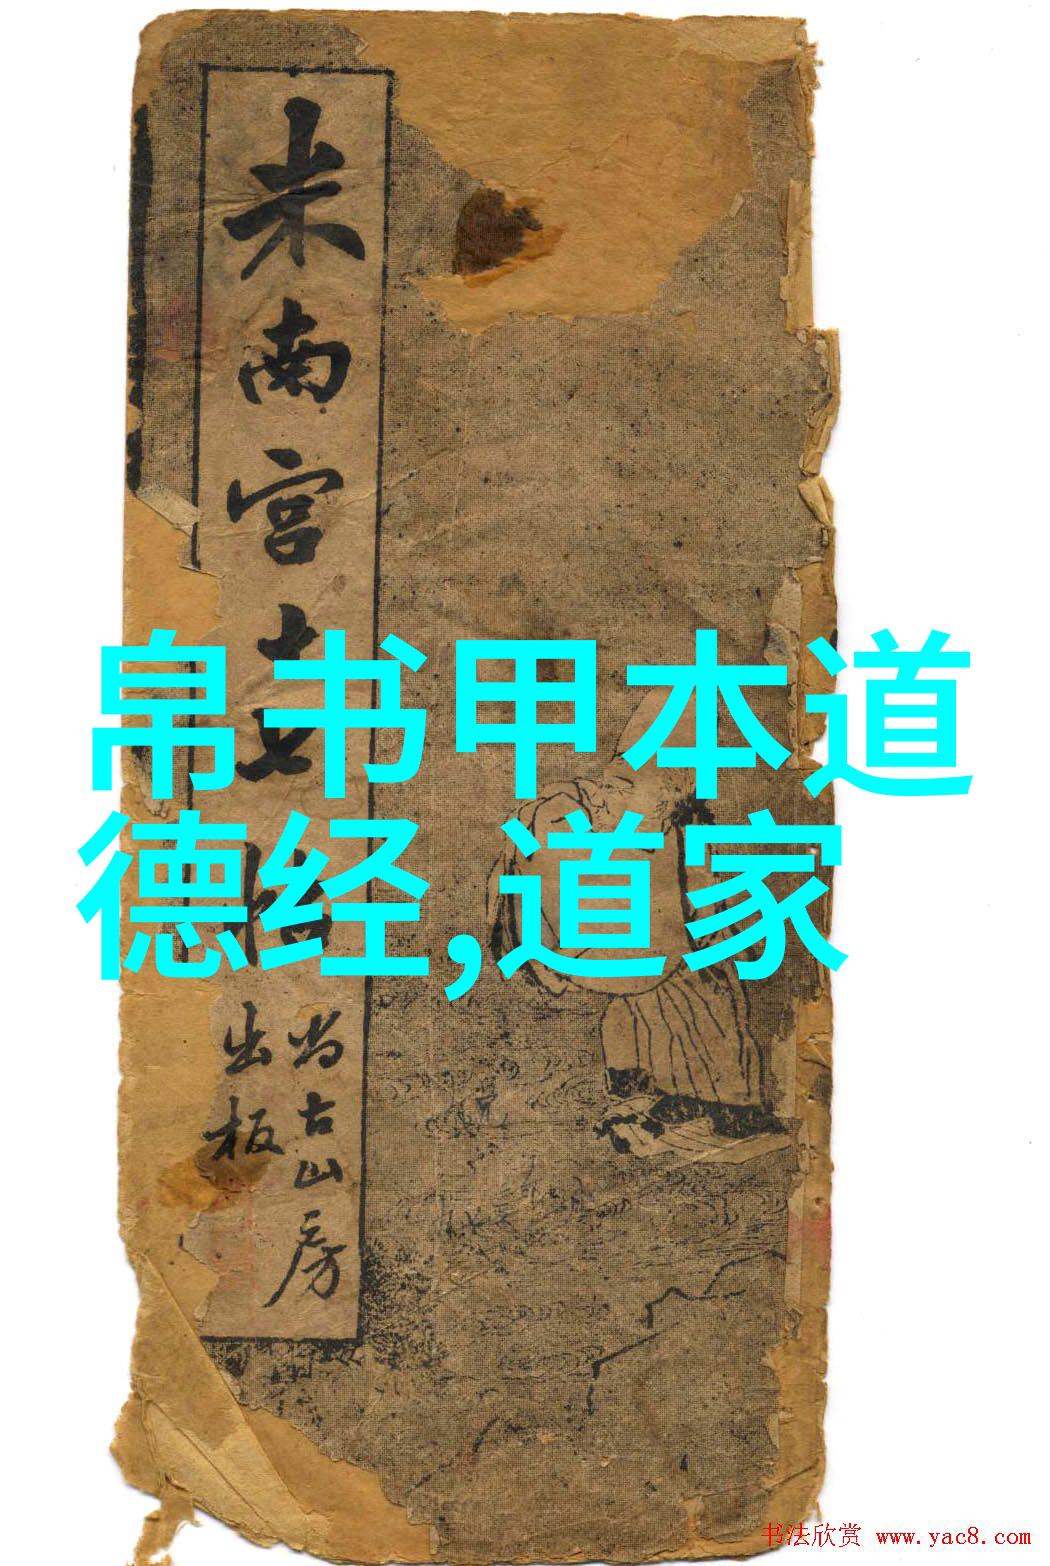 米南宮
尚古山房
出板
帛书甲本道
德经,道家
书法欣赏 www.yac8.com